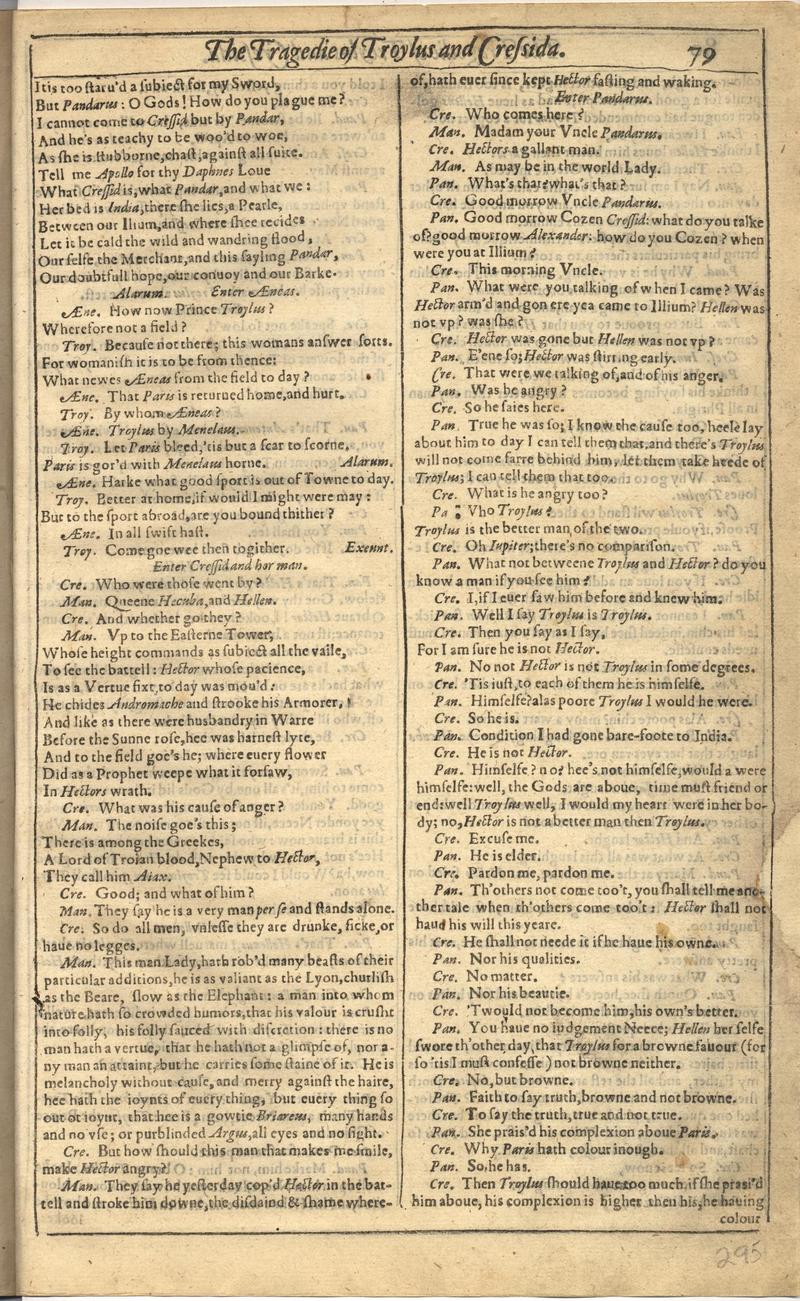 The Tragedie of Troylus and Creſsida. 79
It is too ſtaru'd a ſubiect for my Sword,
But Pandarus: O Gods! How do you plague me?
I cannot come to Creſſid but by Pandar,
And he's as teachy to be woo'd to woe,
As ſhe is ſtubborne, chaſt, againſt all ſuite.
Tell me Apollo for thy Daphnes Loue
What Creſſid is, what Pandar, and what we:
Her bed is India, there ſhe lies, a Pearle,
Between our Ilium, and where ſhee recides
Let it be cald the wild and wandring flood,
Our ſelfe the Merchant, and this ſayling Pandar,
Our doubtfull hope, our conuoy and our Barke.
Alarum. Enter Æneas.
Æne. How now Prince Troylus?
Wherefore not a field?
Troy. Becauſe not there; this womans anſwer ſorts.
For womaniſh it is to be from thence:
What newes Æneas from the field to day?
Æne. That Paris is returned home, and hurt.
Troy. By whom Æneas?
Æne. Troylus by Menelaus.
Troy. Let Paris bleed, 'tis but a ſcar to ſcorne,
Paris is gor'd with Menelaus horne. Alarum.
Æne. Harke what good ſport is out of Towne to day.
Troy. Better at home, if would I might were may:
But to the ſport abroad, are you bound thither?
Æne. In all ſwift haſt.
Troy. Come goe wee then togither. Exeunt.
Enter Creſſid and her man.
Cre. Who were thoſe went by?
Man. Queene Hecuba, and Hellen.
Cre. And whether go they?
Man. Vp to the Eaſterne Tower,
Whoſe height commands as ſubiect all the vaile,
To ſee the battell: Hector whoſe pacience,
Is as a Vertue fixt, to day was mou'd:
He chides Andromache and ſtrooke his Armorer,
And like as there were husbandry in Warre
Before the Sunne roſe, hee was harneſt lyte,
And to the field goe's he; where euery flower
Did as a Prophet weepe what it forſaw,
In Hectors wrath.
Cre. What was his cauſe of anger?
Man. The noiſe goe's this;
There is among the Greekes,
A Lord of Troian blood, Nephew to Hector,
They call him Aiax.
Cre. Good; and what of him?
Man. They ſay he is a very man per ſe and ſtands alone.
Cre. So do all men, vnleſſe they are drunke, ſicke, or
haue no legges.
Man. This man Lady, hath rob'd many beaſts of their
particular additions, he is as valiant as the Lyon, churliſh
as the Beare, ſlow as the Elephant: a man into whom
nature hath ſo crowded humors, that his valour is cruſht
into folly, his folly ſauced with diſcretion: there is no
man hath a vertue, that he hath not a glimpſe of, nor a-
ny man an attaint, but he carries ſome ſtaine of it. He is
melancholy without cauſe, and merry againſt the haire,
hee hath the ioynts of euery thing, but euery thing ſo
out of ioynt, that hee is a gowtie Briareus, many hands
and no vſe; or purblinded Argus, all eyes and no ſight.
Cre. But how ſhould this man that makes me ſmile,
make Hector angry?
Man. They ſay he yeſterday cop'd Hector in the bat-
tell and ſtroke him downe, the diſdaind & ſhame where-
of, hath euer ſince kept Hector faſting and waking.
Enter Pandarus.
Cre. Who comes here?
Man. Madam your Vncle Pandarus.
Cre. Hectors a gallant man.
Man. As may be in the world Lady.
Pan. What's that? what's that?
Cre. Good morrow Vncle Pandarus.
Pan. Good morrow Cozen Creſſid: what do you talke
of? good morrow Alexander: how do you Cozen? when
were you at Illium?
Cre. This morning Vncle.
Pan. What were you talking of when I came? Was
Hector arm'd and gon ere yea came to Illium? Hellen was
not vp? was ſhe?
Cre. Hector was gone but Hellen was not vp?
Pan. E'ene ſo; Hector was ſtirring early.
Cre. That were we talking of, and of his anger.
Pan. Was he angry?
Cre. So he ſaies here.
Pan. True he was ſo; I know the cauſe too, heele lay
about him to day I can tell them that, and there's Troylus
will not come farre behind him, let them take heede of
Troylus; I can tell them that too.
Cre. What is he angry too?
Pa : Who Troylus?
Troylus is the better man of the two.
Cre. Oh Iupiter; there's no compariſon.
Pan. What not betweene Troylus and Hector? do you
know a man if you ſee him?
Cre. I, if I euer ſaw him before and knew him.
Pan. Well I ſay Troylus is Troylus.
Cre. Then you ſay as I ſay,
For I am ſure he is not Hector.
Pan. No not Hector is not Troylus in ſome degrees.
Cre. 'Tis iuſt, to each of them he is himſelfe.
Pan. Himſelfe? alas poore Troylus I would he were.
Cre. So he is.
Pan. Condition I had gone bare-foote to India.
Cre. He is not Hector.
Pan. Himſelfe? no? hee's not himſelfe, would a were
himſelfe: well, the Gods are aboue, time muſt friend or
end: well Troylus well, I would my heart were in her bo-
dy; no, Hector is not a better man then Troylus.
Cre. Excuſe me.
Pan. He is elder.
Cre. Pardon me, pardon me.
Pan. Th'others not come too't, you ſhall tell me ano-
ther tale when th'others come too't: Hector ſhall not
haue his will this yeare.
Cre. He ſhall not neede it if he haue his owne.
Pan. Nor his qualities.
Cre. No matter.
Pan. Nor his beautie.
Cre. 'Twould not become him, his own's better.
Pan. You haue no iudgement Neece; Hellen her ſelfe
ſwore th'other day, that Troylus for a browne fauour (for
ſo 'tis I muſt confeſſe) not browne neither.
Cre. No, but browne.
Pan. Faith to ſay truth, browne and not browne.
Cre. To ſay the truth, true and not true.
Pan. She prais'd his complexion aboue Paris.
Cre. Why Paris hath colour inough.
Pan. So, he has.
Cre. Then Troylus ſhould haue too much, if ſhe prasi'd
him aboue, his complexion is higher then his, he hauing
colour
295